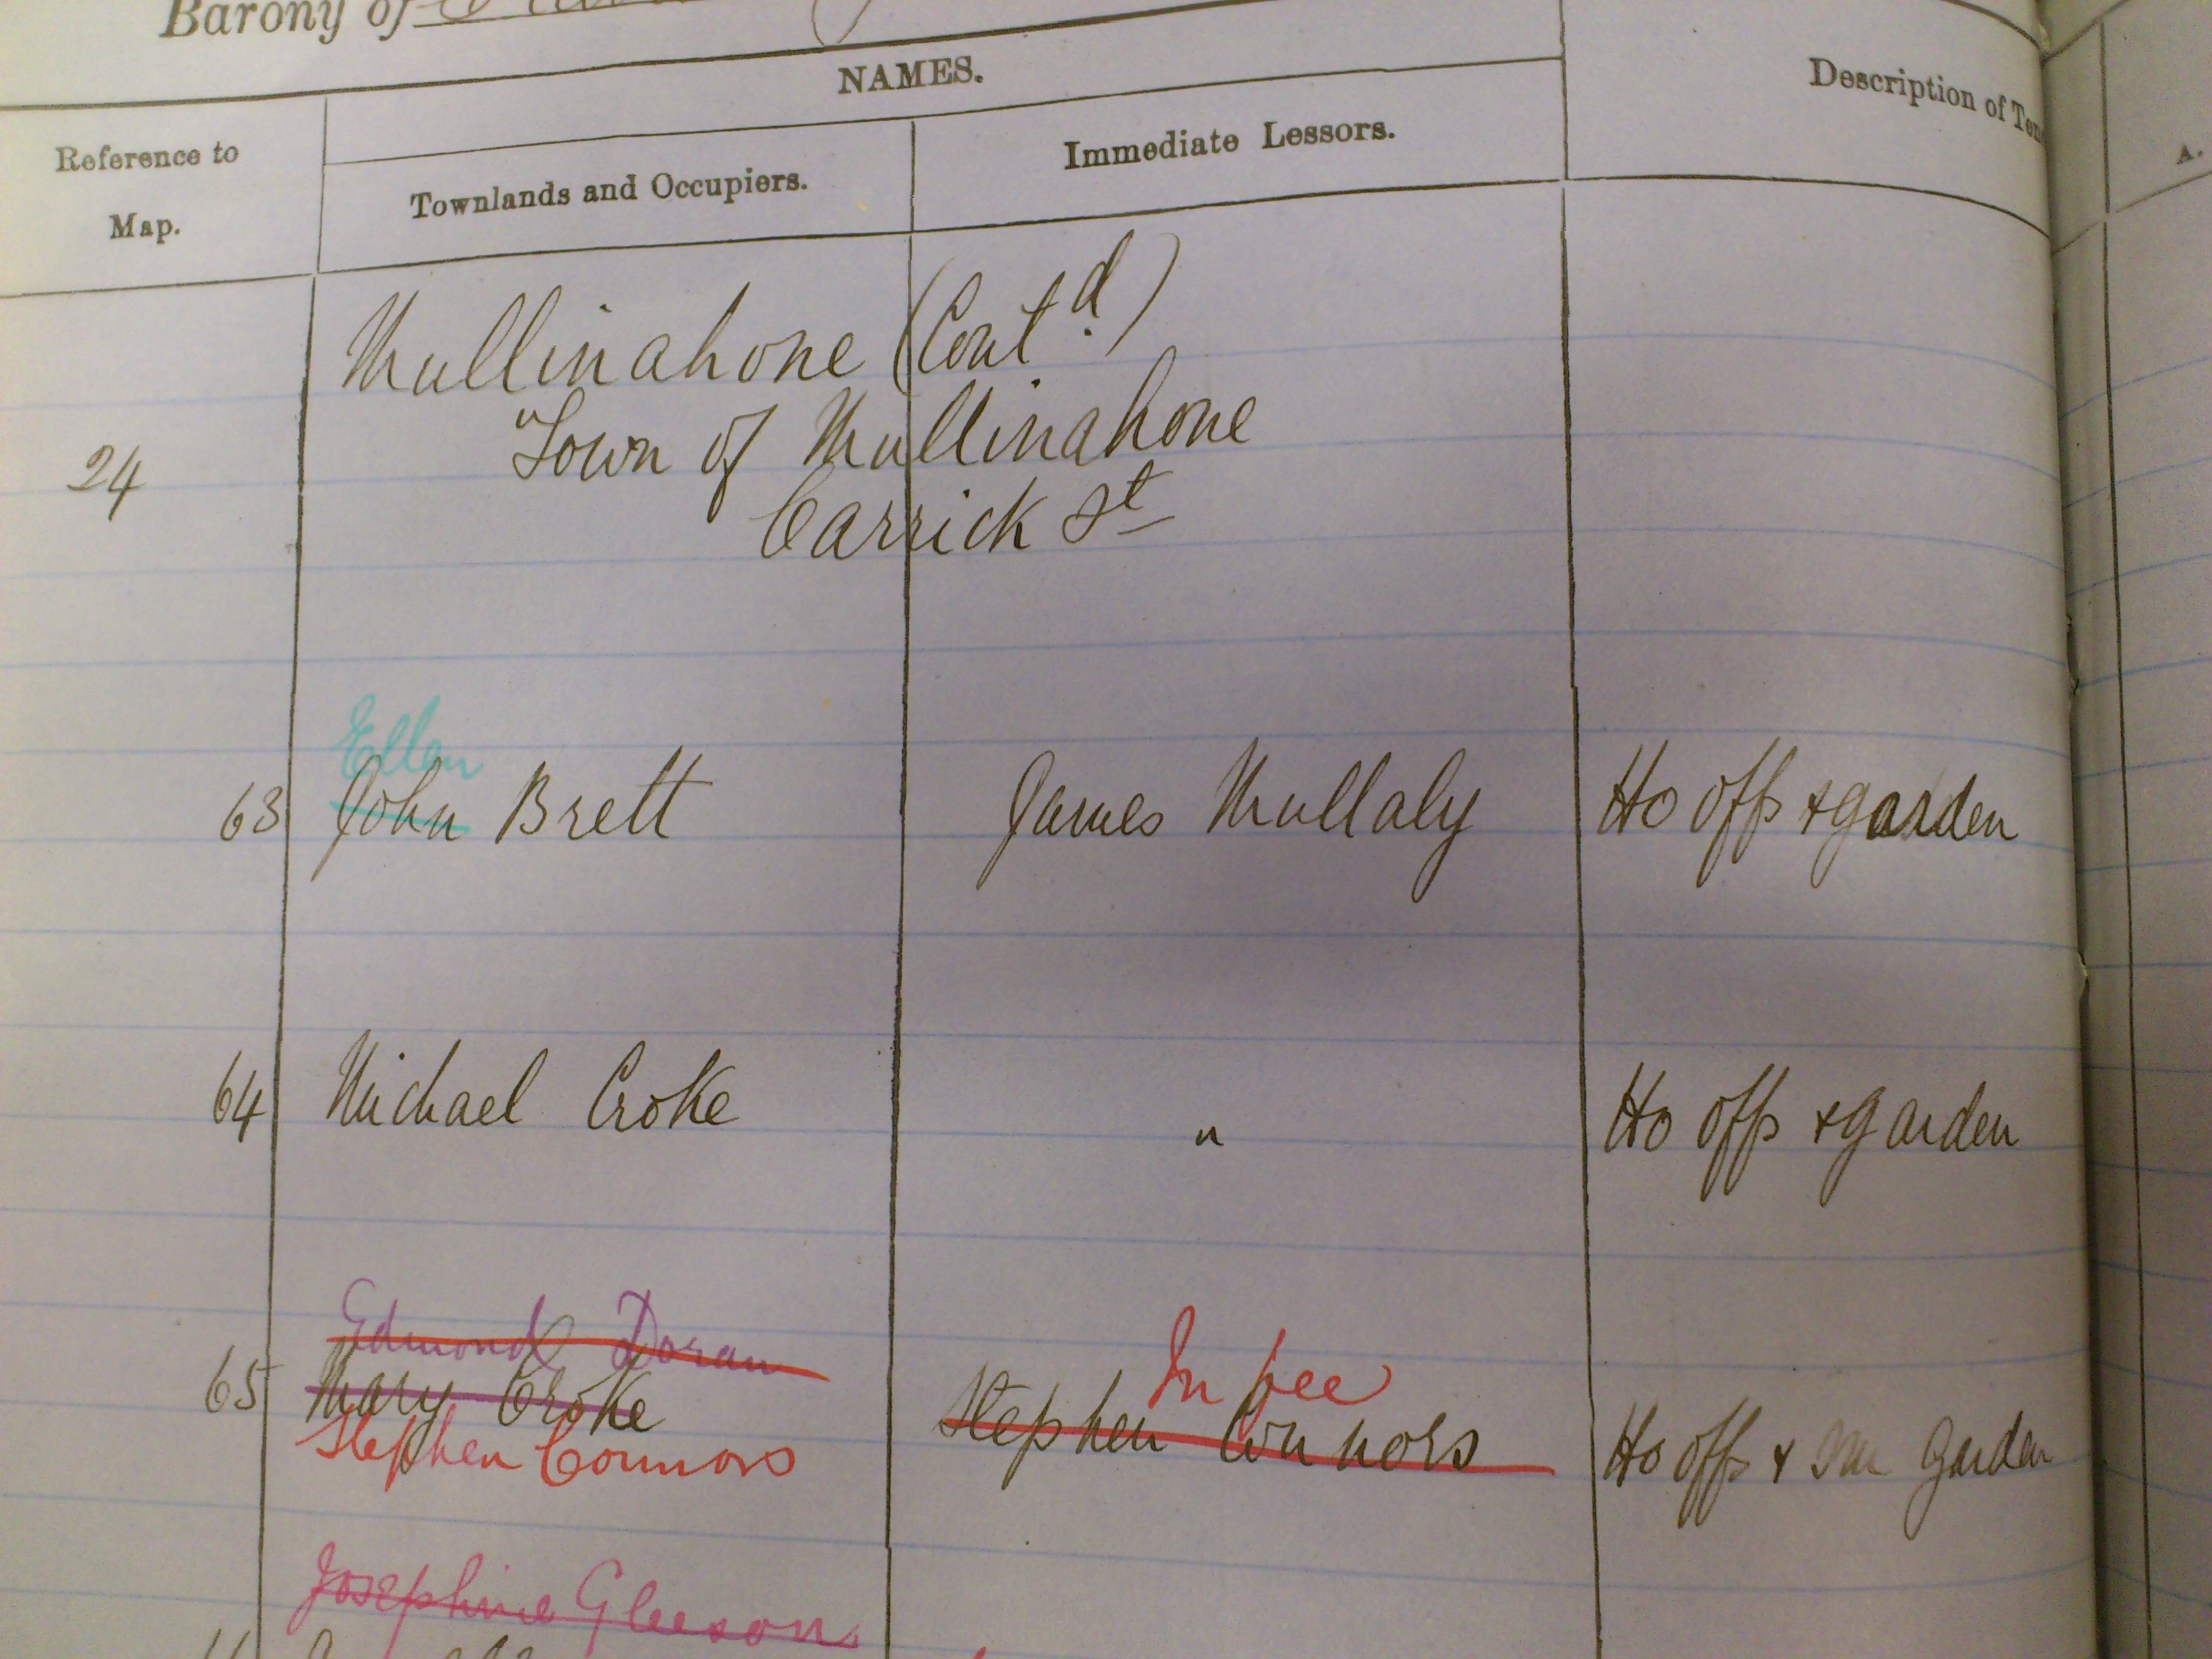 Barony of
NAMES.
Description of Ten
A.
Reference to
Map.
Townlands and Occupiers.
Immediate Lessors.
Mullinahone (Contd)
24
Town of Mullinahone
Carrick St
Ellen
63 John Brett James Mullaly Ho offs & garden
64 Michael Croke " Ho offs & garden
Edmond Doran In fee
65 Mary Croke Stephen Connors Ho offs & Sm Garden
Stephen Connors
Josephine Gleeson